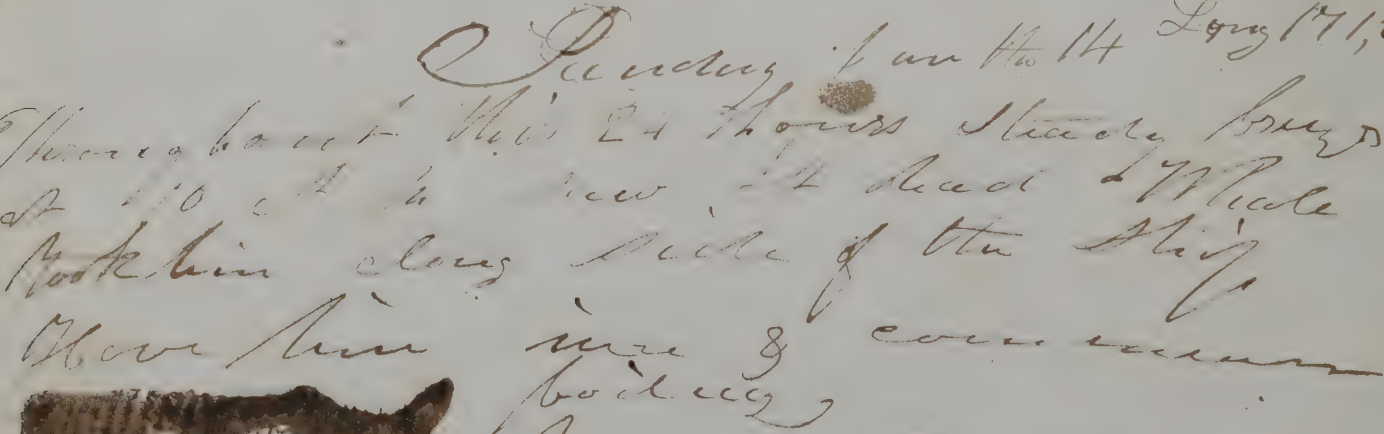 Sunday Jan the 14 Long 171,
Throughout this 24 hours steady breezes
at 10 saw a dead Whale
took him along side of the Ship
Hove him in & commenced
boiling